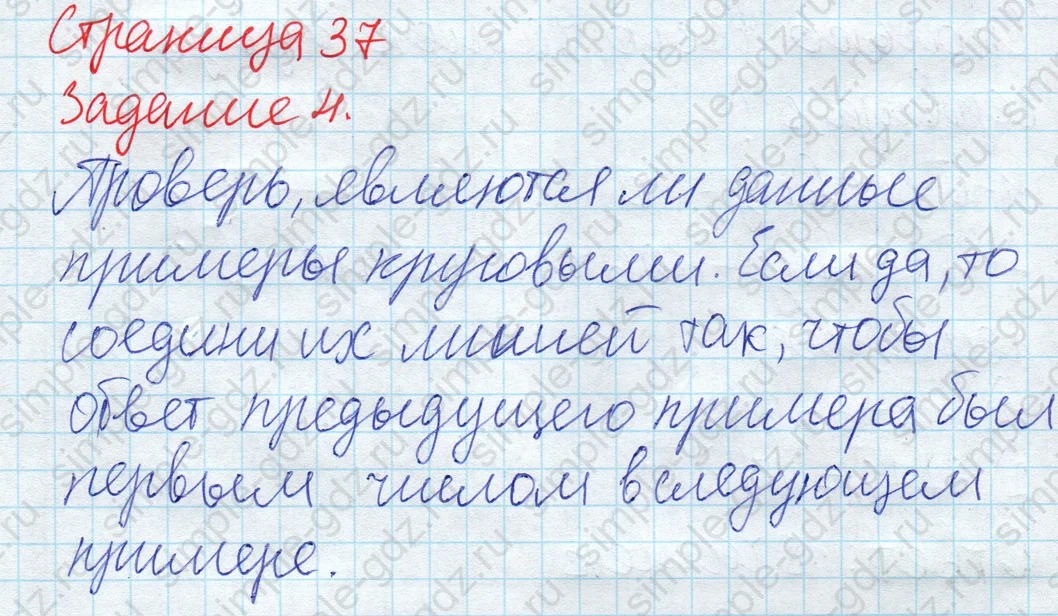 Страница 37
Задание 4.
Проверь, являются ли данные
примеры круговыми. Если да, то
соедини их линией так, чтобы
ответ предыдущего примера был
первым числом в следующем
примере.
simple-gdz.ru